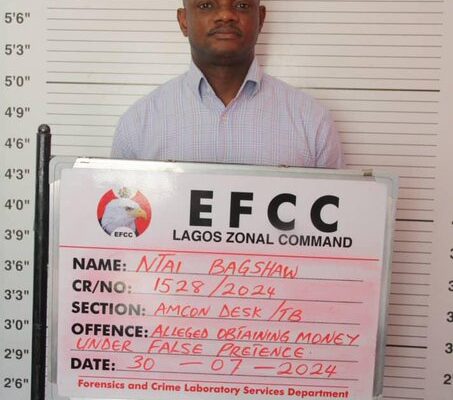 5'6"
5'3"
5'0"
4'9"
4'6"
4'3"
4'0"
3'9"
3'6"
3'3"
3'0"
2'9"
2'6"
EFCC
EFCC
LAGOS ZONAL COMMAND
NAME: NTAI BAGSHAW
CR/NO: 1528/2024
SECTION: AMCON DESK/TB
OFFENCE: ALLEGED OBTAINING MONEY
UNDER FALSE PRETENCE.
DATE: 30-07-2024
Forensics and Crime Laboratory Services Department